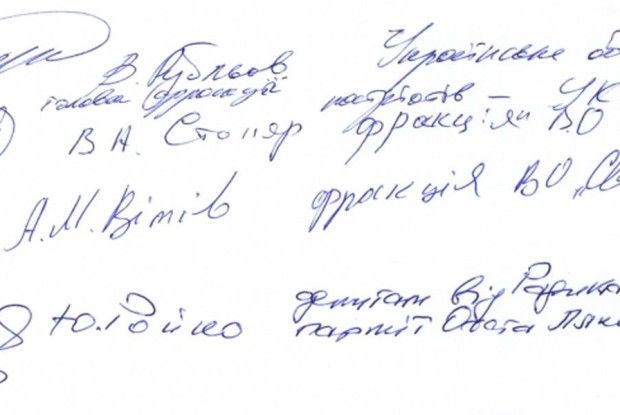 В. Українське об
голова фракції патріотів – УК
В.А. Столяр фракція ВО
А.М. Вітів фракція ВО „Св
Ю. Бойко депутат від Радика
партії Олега Ляш